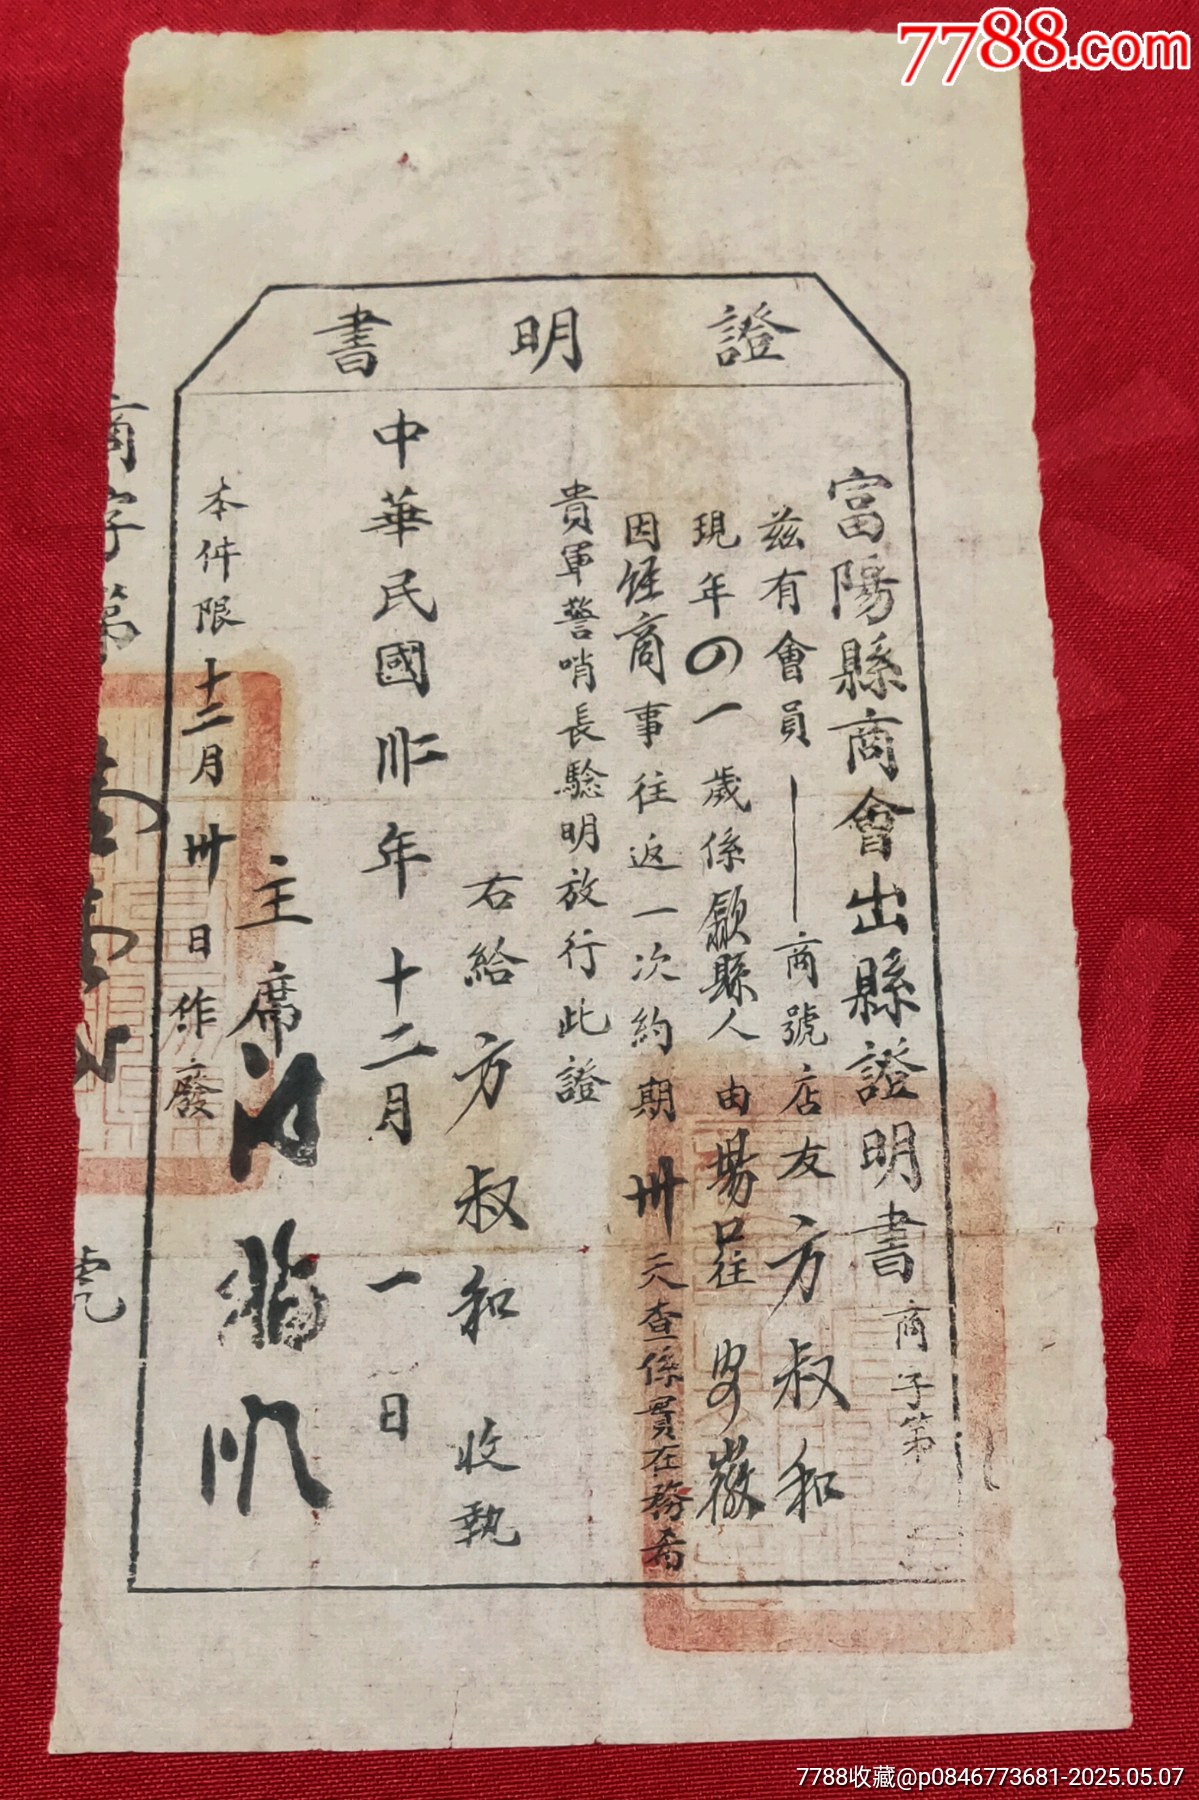 7788.com
證明書
富陽縣商會出縣證明書 商字第
茲有會員——商號店友方叔和
現年四一歲係歙縣人由場口往安徽
因經商事往返一次約期卅天查係實在務希
貴軍警哨長騐明放行此證
右給方叔和收執
中華民國卅二年十二月一日
主席
本件限十二月卅日作廢
商字第 號
7788收藏@p0846773681-2025.05.07